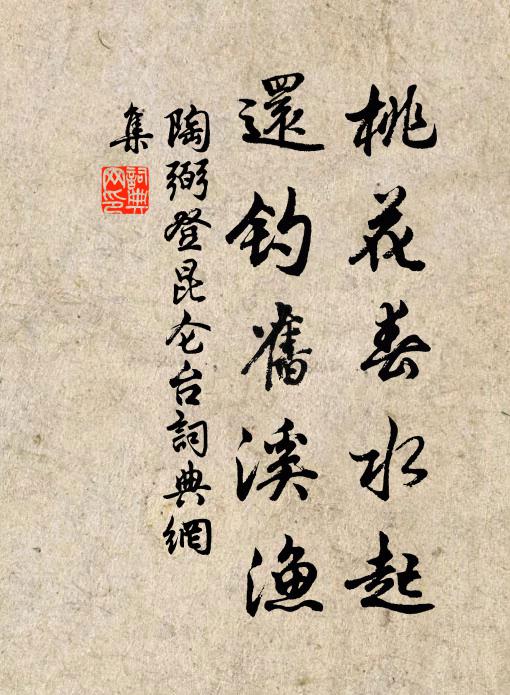 桃花春水起
還釣舊溪漁
陶弼登昆仑台詞典網
集
詞典網印